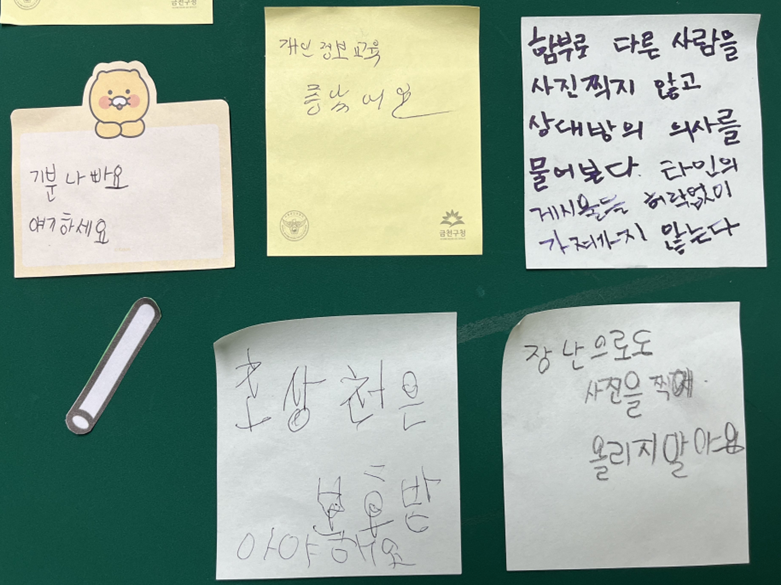 금천구청
기분 나빠요
얘기하세요
개인정보교육
중요해요
금천구청
함부로 다른 사람을
사진찍지 않고
상대방의 의사를
물어본다. 타인의
게시물을 허락없이
가져가지 않는다
초상권은
보호받
아야해요
장난으로도
사진을 찍어
올리지말아요